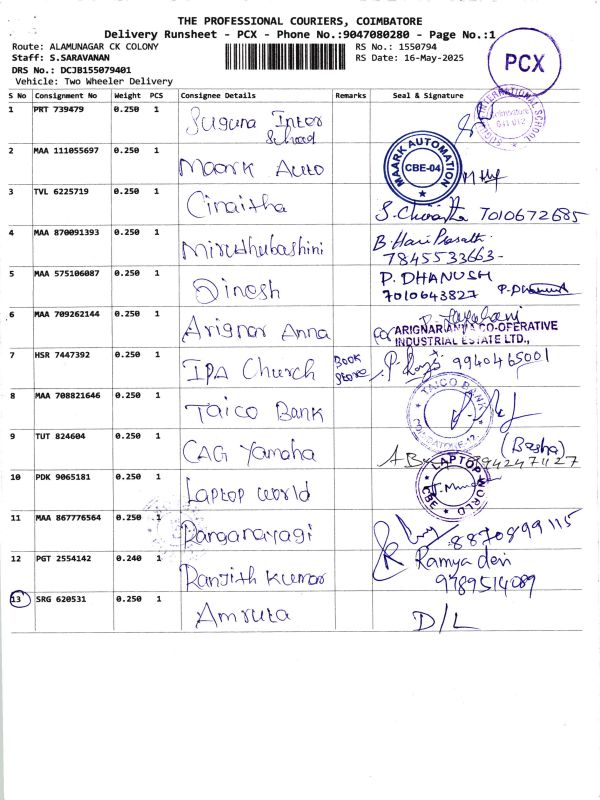 THE PROFESSIONAL COURIERS, COIMBATORE
Delivery Runsheet - PCX - Phone No.:9047080280 - Page No.:1
Route: ALAMUNAGAR CK COLONY
RS No.: 1550794
Staff: S.SARAVANAN
RS Date: 16-May-2025
DRS No.: DCJB155079401
Vehicle: Two Wheeler Delivery
PCX
S No Consignment No Weight PCS Consignee Details Remarks Seal & Signature
1 PRT 739479 0.250 1 Suguna Inter School
INTERNATIONAL SCHOOL
2 MAA 111055697 0.250 1 Maark Auto
MAARK AUTOMATION
CBE-04
3 TVL 6225719 0.250 1 Cinaitha 7010672685
4 MAA 870091393 0.250 1 Miruthubashini B. Hari Prasath
7845533663
5 MAA 575106087 0.250 1 Dinesh P. DHANUSH
7010643827
6 MAA 709262144 0.250 1 Arignar Anna for
ARIGNAR ANNA CO-OPERATIVE
INDUSTRIAL ESTATE LTD.,
7 HSR 7447392 0.250 1 IPA Church Book Store 9940465001
8 MAA 708821646 0.250 1 Taico Bank
TAICO BANK
9 TUT 824604 0.250 1 CAG Yamaha (Basha)
10 PDK 9065181 0.250 1 Laptop World
LAPTOP WORLD
CBE
11 MAA 867776564 0.250 1 Ranganayagi 8870899115
12 PGT 2554142 0.240 1 Ranjith Kumar Ramya devi
9789514089
13 SRG 620531 0.250 1 Amruta D/L